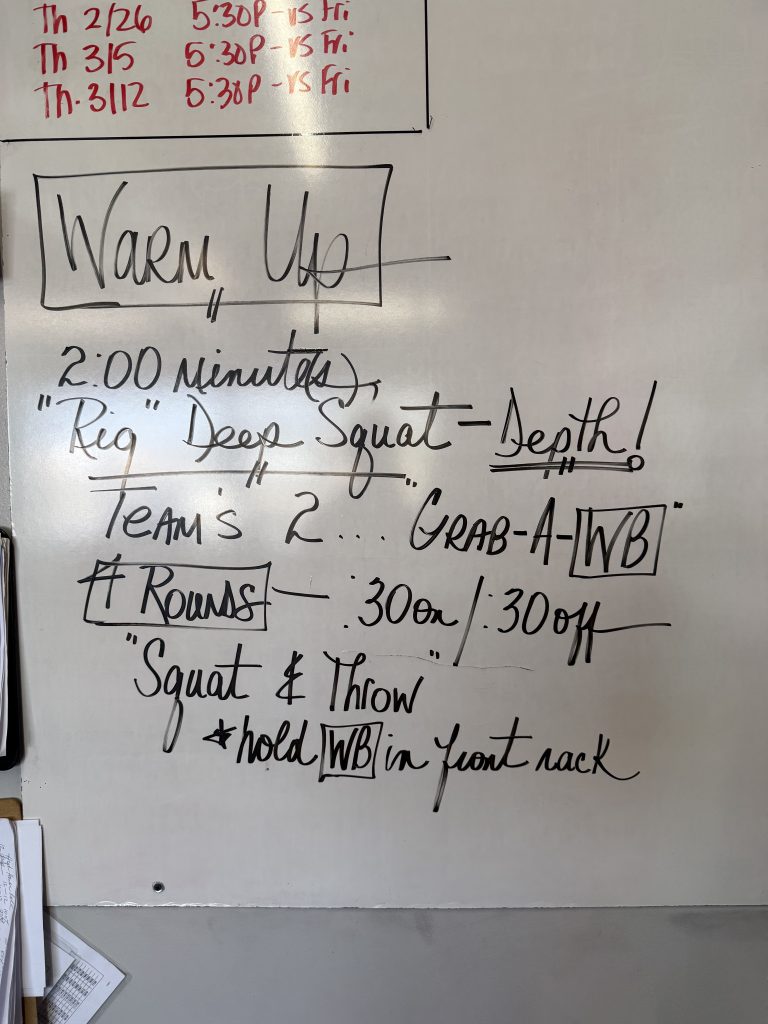 Th 2/26 5:30P - vs Fri
Th 3/5 5:30P - vs Fri
Th. 3/12 5:30P - vs Fri
Warm Up
2:00 Minute(s),
"Rig" Deep Squat - Depth!
Team's 2 .... "Grab-A-WB"
4 Rounds — :30 on / :30 off
"Squat & Throw"
*hold WB in front rack